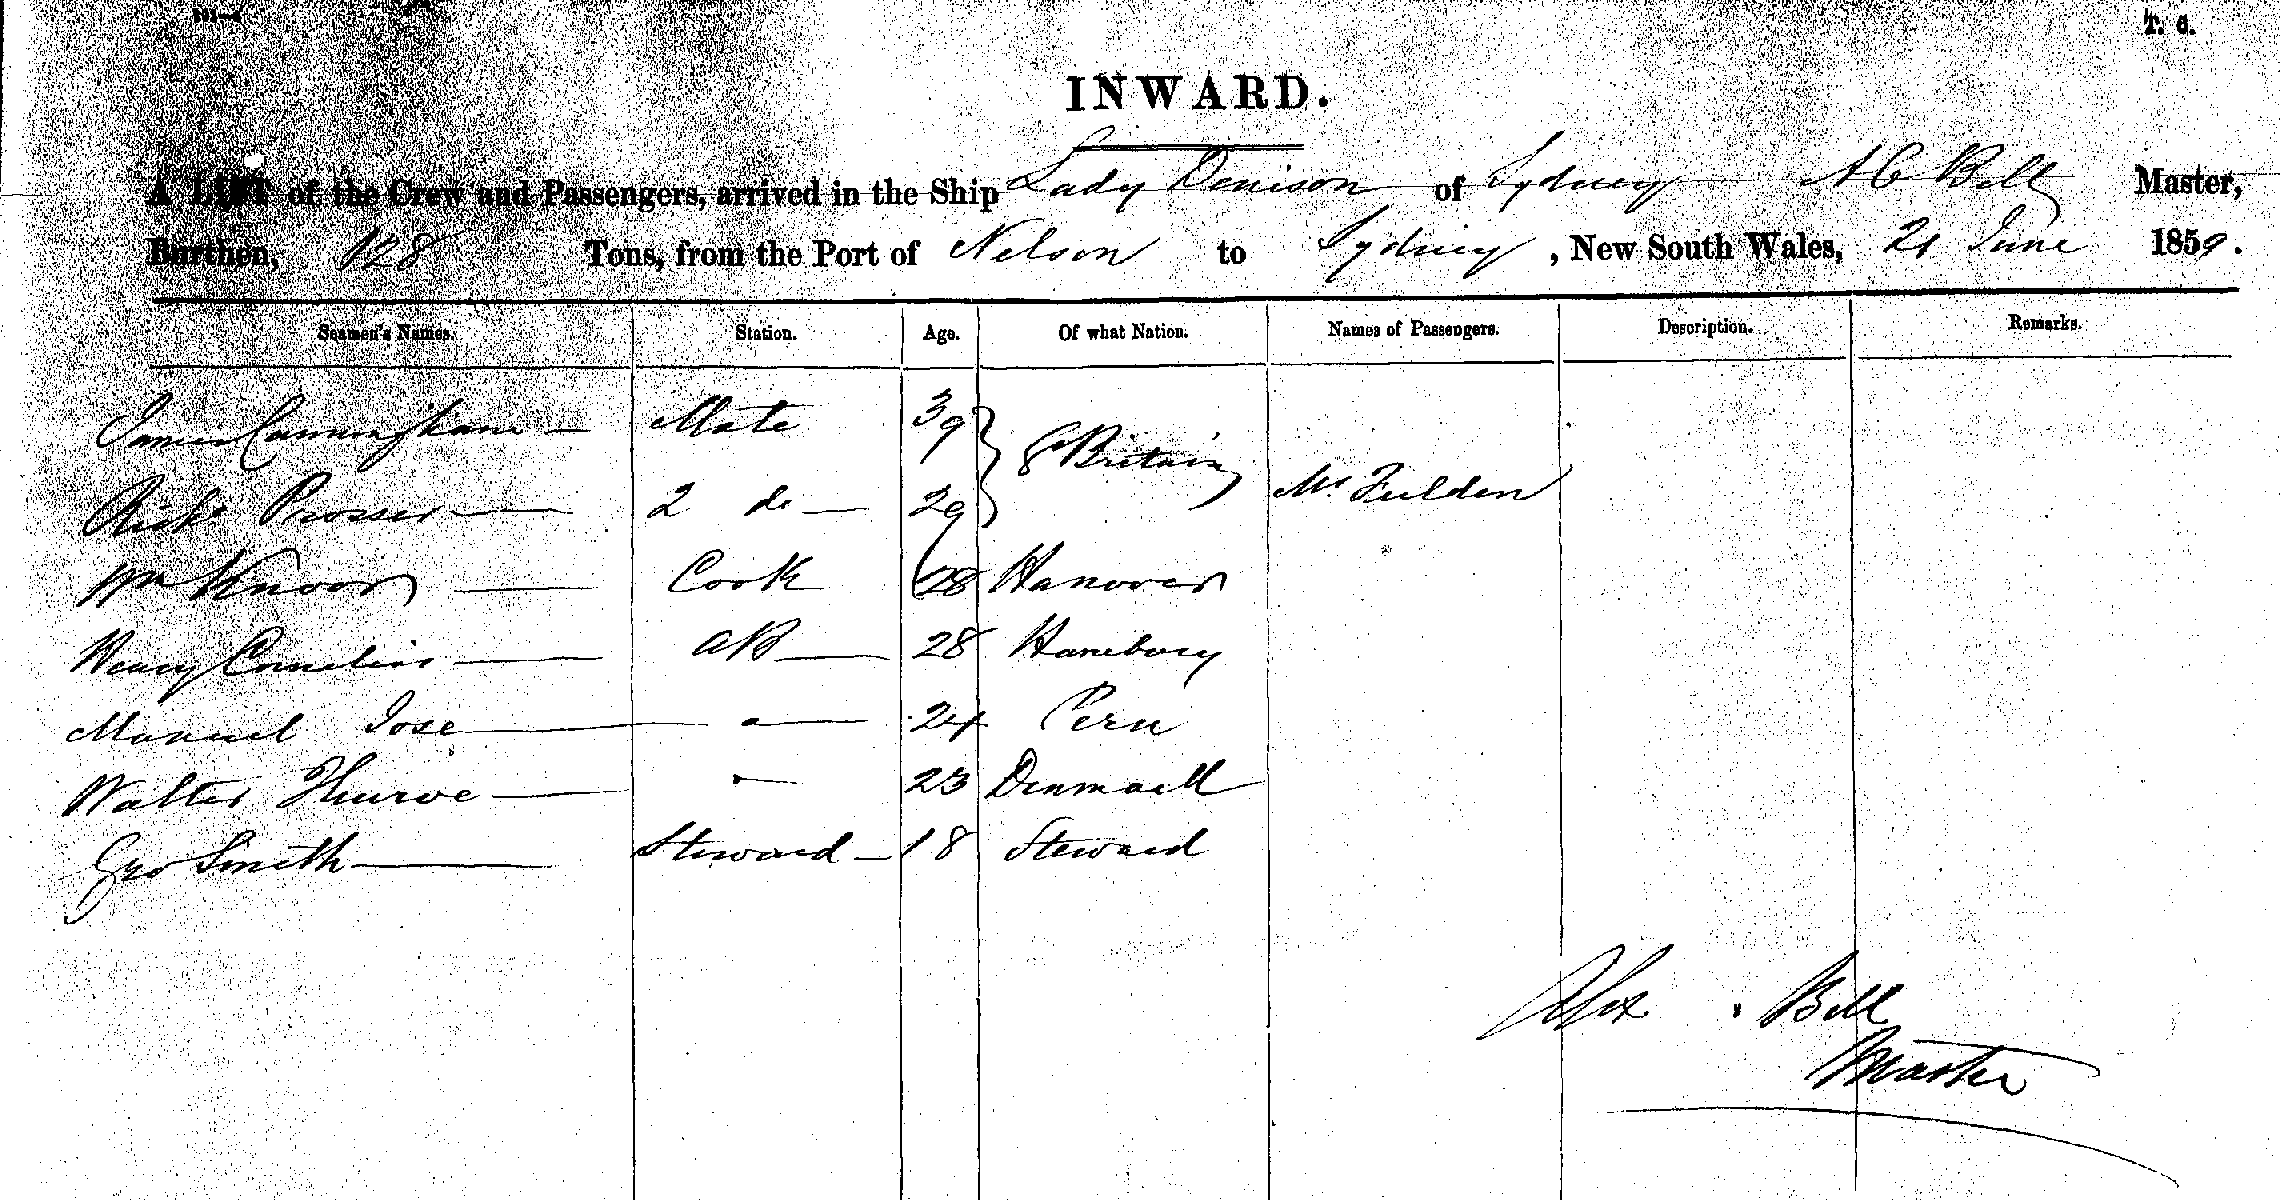 T. C.
INWARD.
A LIST of the Crew and Passengers, arrived in the Ship Lady Denison of Sydney A C Bell Master,
Burthen, 128 Tons, from the Port of Nelson to Sydney, New South Wales, 21 June 1859.
Seamen's Names. Station. Age. Of what Nation. Names of Passengers. Description. Remarks.
James Cunningham Mate 39 G Britain
Richd Prosser 2 do 29 Mr Fielden
Wm Knoor Cook 28 Hanover
Henry Cornelius AB 28 Hamburg
Manuel Jose 24 Peru
Walter 23 Denmark
Geo Smith Steward 18 Steward
Alex Bell
Master